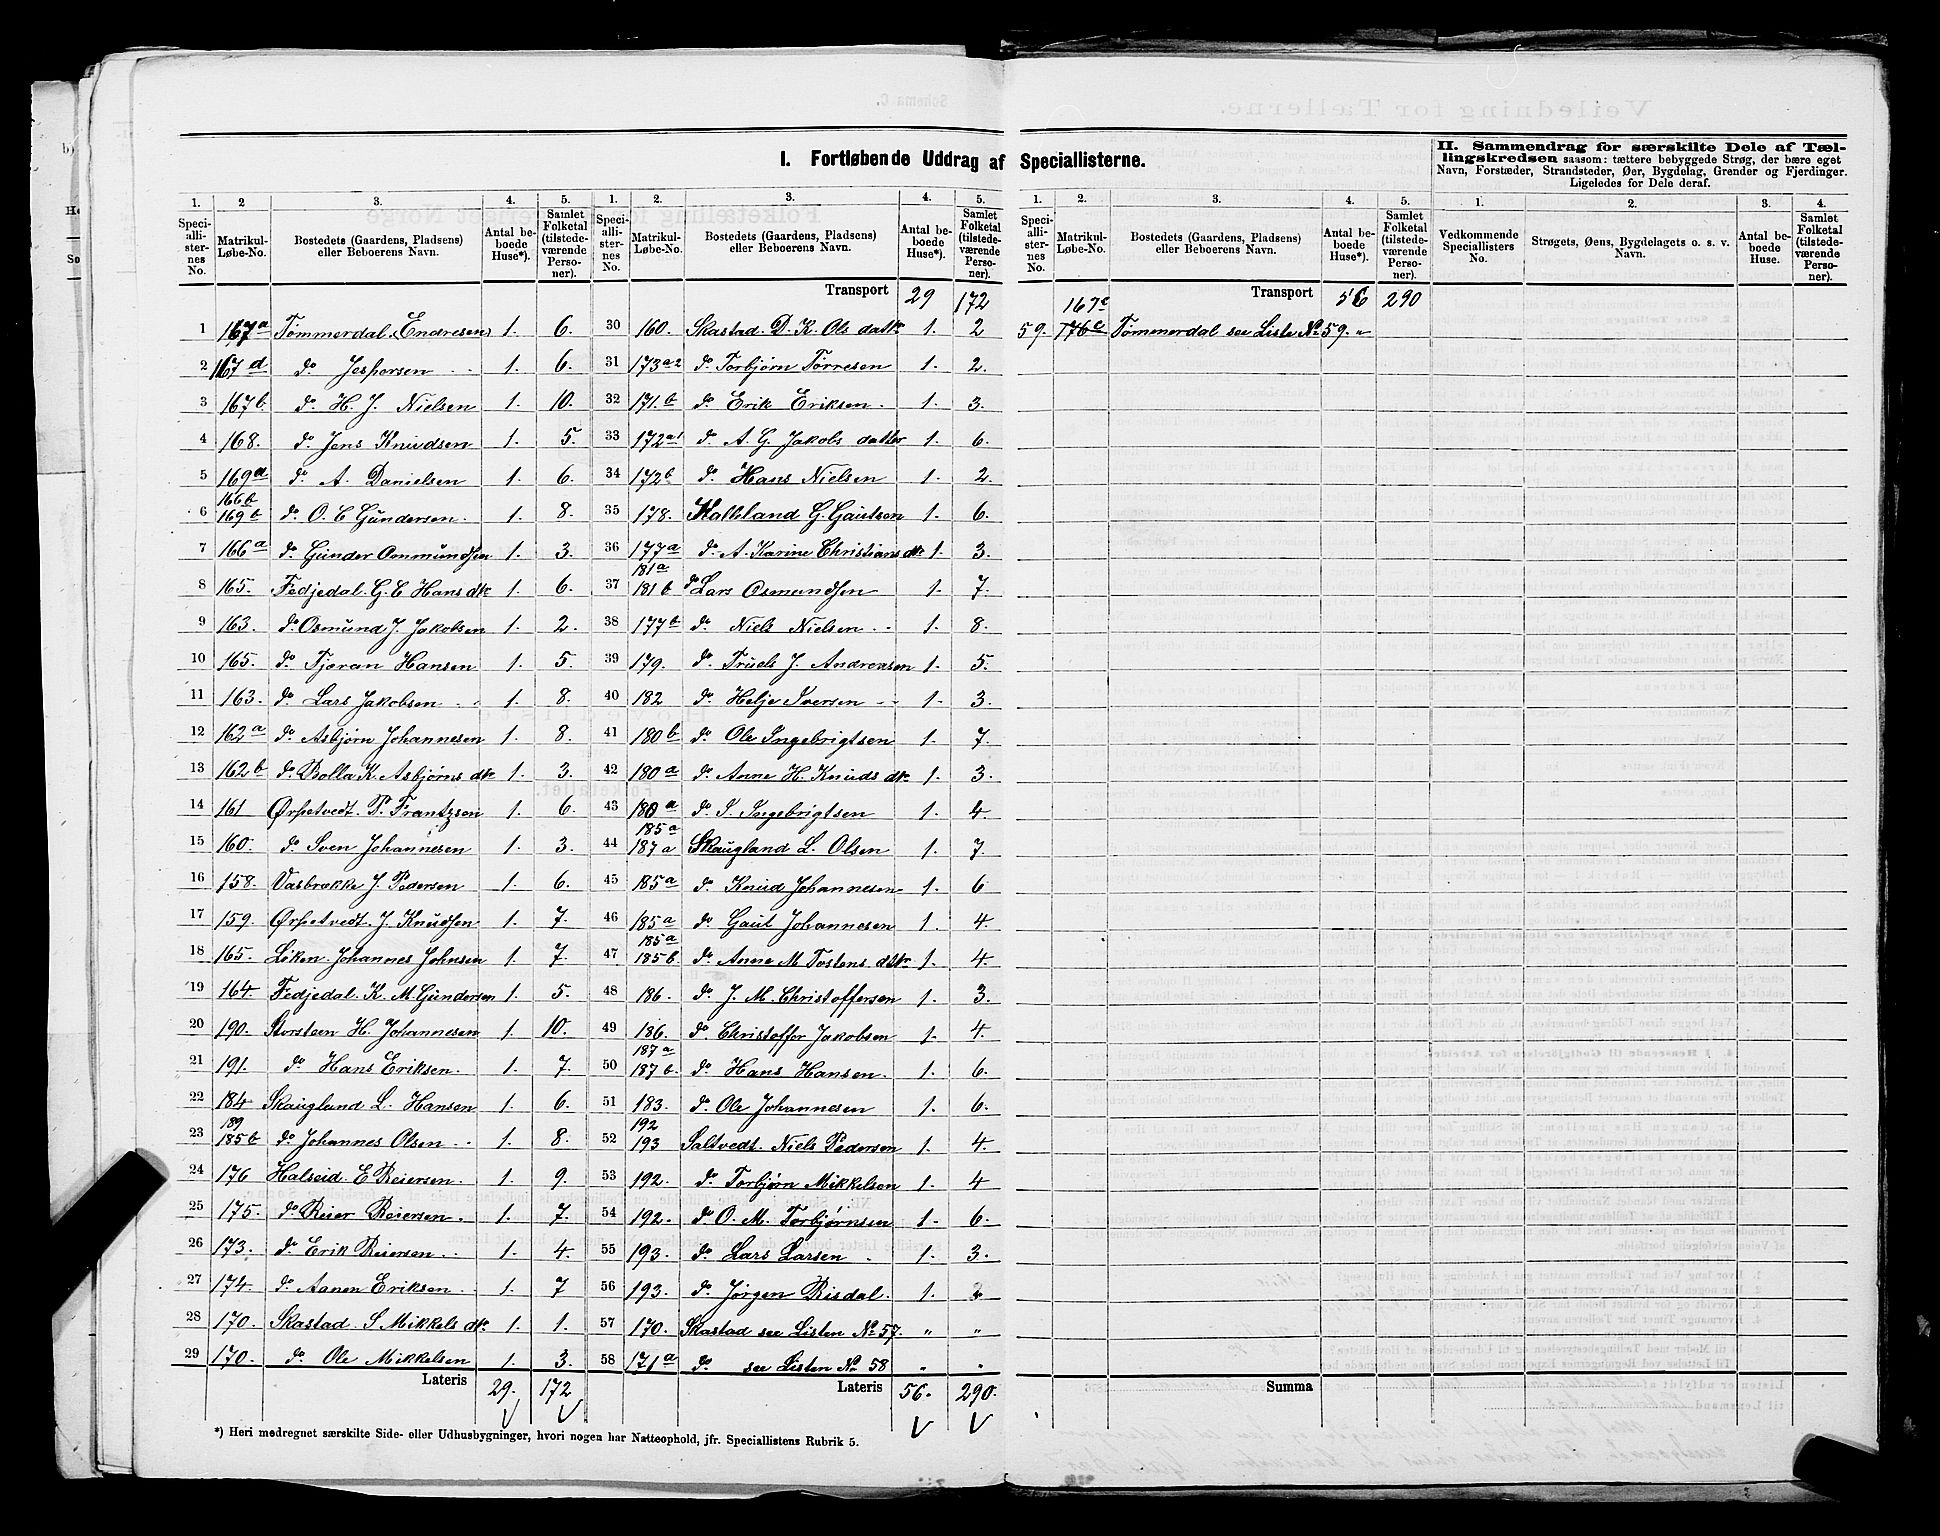 I. Fortløbende Uddrag af Speciallisterne.
II. Sammendrag for særskilte Dele af Tæl-
lingskredsen saasom: tættere bebyggede Strøg, der bære eget
Navn, Forstæder, Strandsteder, Øer, Bygdelag, Grender og Fjerdinger.
Ligeledes for Dele deraf.
1. 2 3. 4. 5.
Speciallisternes No. Matrikul-Løbe-No. Bostedets (Gaardens, Pladsens) eller Beboerens Navn. Antal beboede Huse*). Samlet Folketal (tilstedeværende Personer).
1 167a Tømmerdal. Endresen 1. 6.
2 167d do Jespersen 1. 6.
3 167b do H. J. Nielsen 1. 10.
4 168. do Jens Knudsen 1. 5.
5 169a do A. Danielsen 1. 6.
6 166b 169b do O. C Gundersen. 1. 8.
7 166a do Gunder Ommundsen 1. 3.
8 165. Fedjedal. G. C Hans dtr 1. 6.
9 163. do Osmund J. Jakobsen 1. 2.
10 165. do Tjøran Hansen 1. 5.
11 163. do Lars Jakobsen 1. 8.
12 162a do Asbjørn Johannesen 1. 8.
13 162b do Bolla K. Asbjørns dtr 1. 3.
14 161 Ørpetvedt. P. Frantzsen 1. 6.
15 160. do Sven Johannesen 1. 3.
16 158. Vasbrække J. Pedersen 1. 6.
17 159. Ørpetvedt. J. Knudsen 1. 7.
18 165. Liken. Johannes Johnsen 1. 7.
19 164 Fedjedal. K. M. Gundersen 1. 5.
20 190. Storsteen H. Johannesen 1. 10.
21 191. do Hans Eriksen. 1. 7.
22 184 Skaugland L. Hansen 1. 6.
23 189 185b do Johannes Olsen 1. 8.
24 176 Halseid. E Reiersen. 1. 9.
25 175. do Reier Reiersen. 1. 7.
26 173. do Erik Reiersen. 1. 4.
27 174. do Aanen Eriksen. 1. 7
28 170. Skastad. S Mikkels dtr. 1. 1.
29 170. do Ole Mikkelsen 1. 3.
Lateris 29. 172
1. 2. 3. 4. 5.
Speciallisternes No. Matrikul-Løbe-No. Bostedets (Gaardens, Pladsens) eller Beboerens Navn. Antal beboede Huse*). Samlet Folketal (tilstedeværende Personer).
Transport 29 172
30 160. Skastad. D. K. Ols datr 1. 2
31 173a2 do Torbjørn Tørresen 1. 2.
32 171.b do Erik Eriksen. 1. 3.
33 172a1 do A. G. Jakobs datter 1. 6.
34 172b do Hans Nielsen 1. 2.
35 178. Kalleland G. Gautsen 1. 6.
36 177a do A. Karine Christians dtr 1. 3.
37 181a 181b do Lars Osmundsen 1. 7.
38 177b do Niels Nielsen 1. 8.
39 179. do Truels J. Andreasen 1. 5.
40 182 do Helje Iversen 1. 3.
41 180b do Ole Ingebrigtsen 1. 7.
42 180a do Anne H. Knuds dtr 1. 3.
43 180a do S. Ingebrigtsen 1. 4
44 185a 187a Skaugland L. Olsen 1. 7.
45 185a do Knud Johannesen 1. 6
46 185a do Gaut Johannesen 1. 4.
47 185a 185b. do Anne M Tostens dttr 1. 4.
48 186. do J. M. Christoffersen 1. 3.
49 186. do Christoffer Jakobsen 1. 4.
50 187a 187b. do Hans Hansen. 1. 6.
51 183. do Ole Johannesen 1. 6.
52 192 193 Saltvedt. Niels Pedersen 1. 4.
53 192. do Torbjørn Mikkelsen 1. 4
54 192. do O. M. Torbjørnsen 1. 6.
55 193. do Lars Larsen 1. 3.
56 193. do Jørgen Risdal. 1. 2
57 170. Skastad see Listen No 57. " "
58 171a do see Listen No 58 " "
Lateris 56. 290.
1. 2. 3. 4. 5.
Speciallisternes No. Matrikul-Løbe-No. Bostedets (Gaardens, Pladsens) eller Beboerens Navn. Antal beboede Huse*). Samlet Folketal (tilstedeværende Personer).
Transport 56 290
59. 167e 176e Tømmerdal see Liste No 59. "
Summa
1. 2. 3. 4.
Vedkommende Speciallisters No. Strøgets, Øens, Bygdelagets o. s. v. Navn. Antal beboede Huse. Samlet Folketal (tilstedeværende Personer).
*) Heri medregnet særskilte Side- eller Udhusbygninger, hvori nogen har Natteophold, jfr. Speciallistens Rubrik 5.